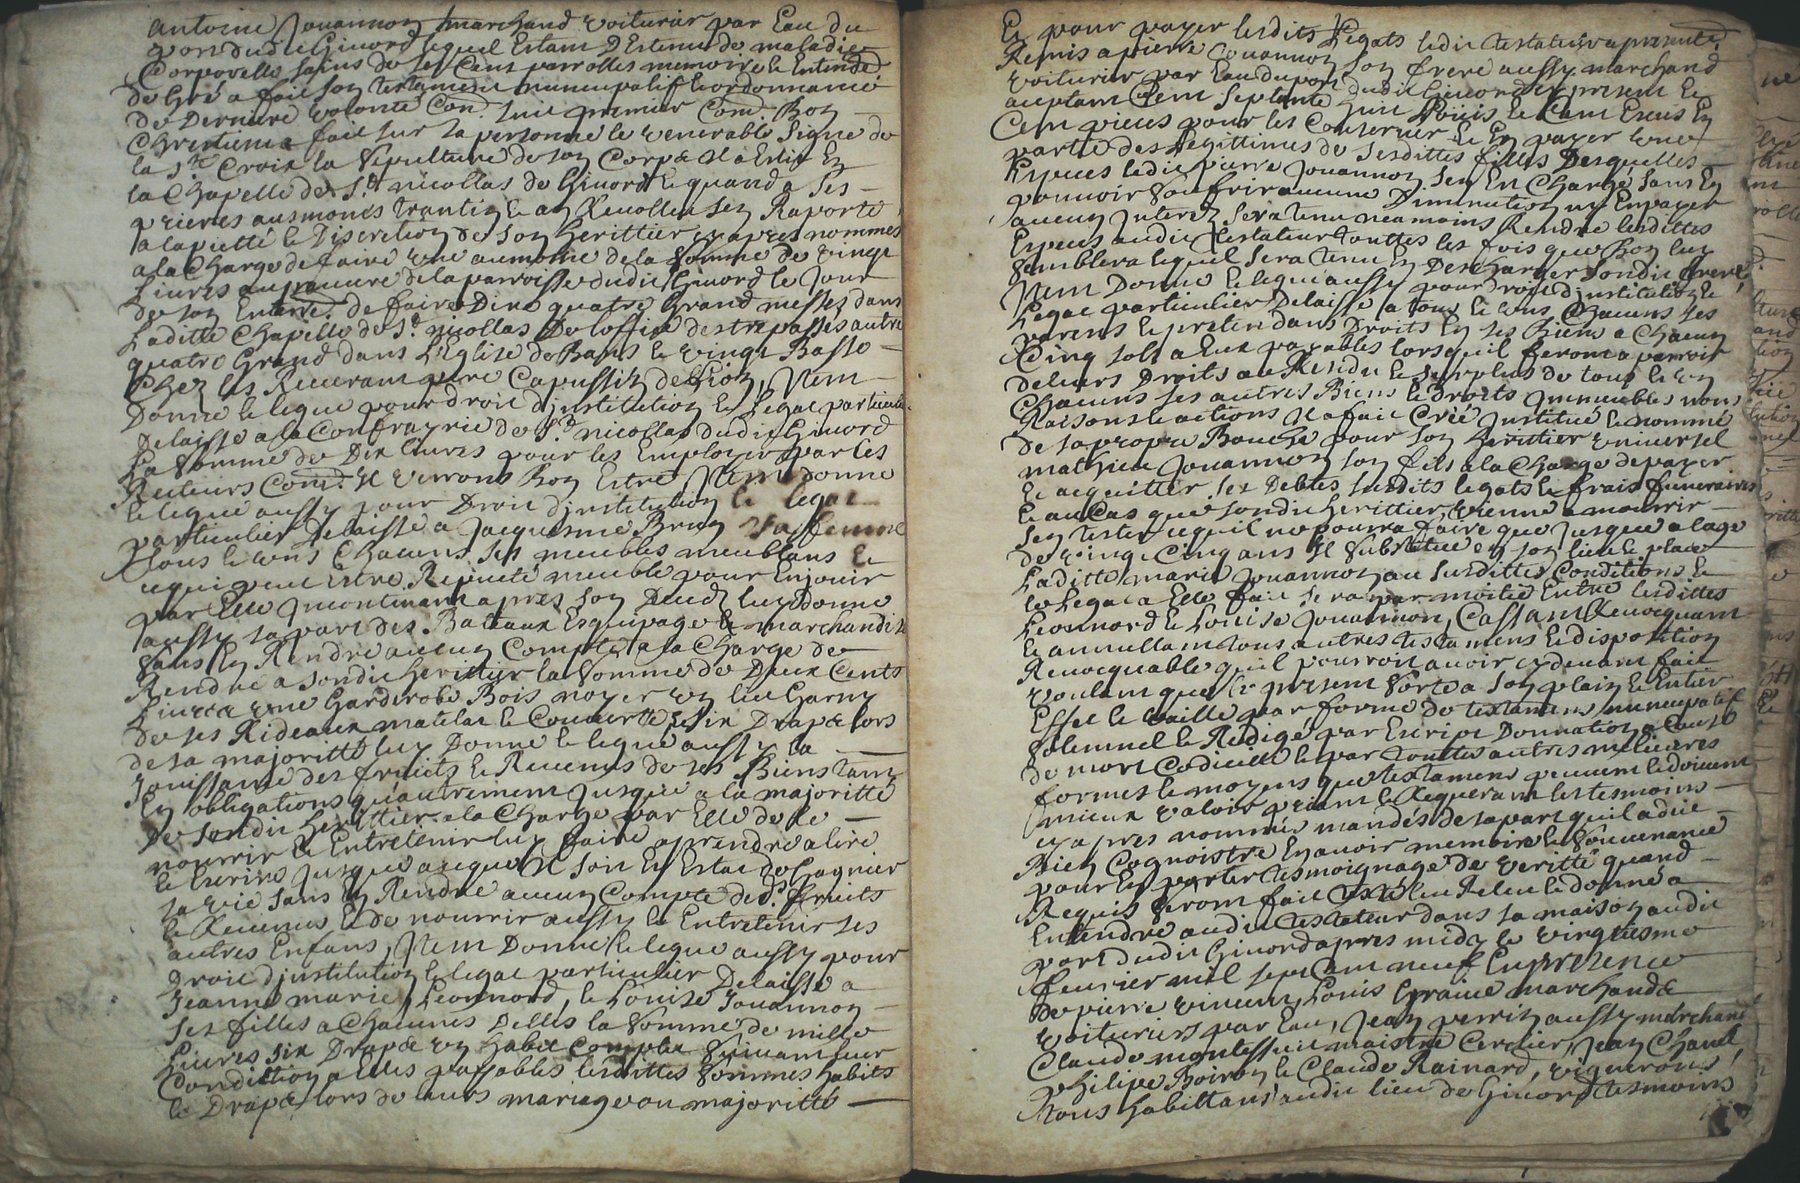 Antoine Jouannon marchand voiturier par Eau du
port dudit Givord lequel Estant Destenu de maladie
Corporelle sains de ses sens parrolles memoire et Entende
de Gré a fait son testament nuncupatif et ordonnance
de Derniere volonté Com. suit premier Com. Bon
Chrestien a fait sur sa personne le venerable signe de
la Ste Croix la sepulture de son Corps Il a Eslit En
la Chapelle de St nicollas de Givord Et quand a ses
prieres ausmones trantin Et an Revollu sen Raporte
a la pietté et Discretion de son herittier cy apres nommes
a la Charge de faire une aumone de la somme de vingt
Livres au pauvre de la parroisse dudit Givord le Jour
de son Enterre. de faire Dire quatre Grand messes dans
Laditte Chapelle de St nicollas De loffice des trepasses autre
quatre Grand dans L'Eglise de Bans Et vingt Basse
Chez les Reverant pere Capussin de Lion, Item
Donne et legue pour droit d'institution Et Legat particul.
Delaisse a la Confrayrie de St nicollas dudit Givord
La somme de Dix livres pour les Employer par les
Recteurs Com. Il verront Bon Estre Item donne
et legue aussy pour Droit d'institution et legat
particulier Delaisse a Jacquesme Brun sa femme
tous et uns Chacuns ses meubles meublans Et
ce qui peut Estre Reputté meuble pour En jouir
par Elle Incontinant apres son Deceds luy Donne
aussy sa part des Bateaux Esquipage Et marchandise
sans En Rendre aucun Compte a la Charge de
Rendre a sondit herittier la somme de Deux Cents
Livres une Garderobe Bois noyer un lict Garny
de ses Rideaux matelas Et Couverte six Draps lors
de sa majoritté luy Donne et legue aussy la
Jouissance des fruits et Revenus de ses Biens tant
En obligations qu'autrement Jusque a la majoritté
De sondit herittier a la Charge par Elle de le
nourrir Et Entretenir luy faire aprendre a lire
Et Escrire jusque a ce que Il soit En Estat de Gagnier
sa vie sans En Rendre aucun Compte desd. fruits
et Revenus Et de nourrir aussy Et Entretenir ses
autres Enfans, Item Donne et legue aussy pour
droit d'institution et legat particulier Delaisse a
Jeanne marie, Leonnord, et Louise Jouannon
ses filles a Chacunes Delles la somme de mille
Livres six Draps un habit Complet suivant leur
Condittion a Elles payables lesdittes sommes habits
Et Draps lors de leurs mariage ou majoritté
Et pour payer lesdits Legats ledit testateur a presente.
Remis a pierre Jouannon son frere aussy marchand
voiturier par Eau du port dudit Givord cy present Et
aceptant Cent septante huit Louis Et Cent Escus En
Cent pieces pour les Conserver Et En payer une
partie des Legittimes de sesdittes filles Desquelles
Especes ledit pierre Jouannon sen En Charge sans En
pouvoir souffrir aucune Diminution ny En payer
aucun Interest sera tenu neamoins Rendre lesdittes
Especes audit testateur touttes les fois que Bon luy
semblera lequel sera tenu En Descharger sondit frere,
Item Donne et legue aussy pour droit d'institution Et
Legat particulier Delaisse a tous Et uns Chacuns ses
parens Et pretendans Droits En ses Biens a Chacun
Cinq sols a Eux payables lorsquil feront a parroir
de leurs Droits au Residu Et surplus de tous Et un
Chacuns ses autres Biens Et droits Immeubles noms
Raisons Et actions Il a fait Créé Institué Et nommé
de sa propre Bouche pour son herittier universel
mathieu Jouannon son fils a la Charge de payer
Et acquitter ses Debtes susdits legats Et frais funeraires
Et au Cas que sondit herittier vienne a mourrir
sen tester ce quil ne pourra faire que Jusque a lage
de vingt Cinq ans Il substitue en son lieu Et place
Laditte marie Jouannon au susdittes Condittions Et
le Legat a Elle fait sera par moitié Entre lesdittes
Leonnord Et Louise Jouannon, Cassant Revocquant
Et annullant tous autres testamens Et disposition
Revocquable quil pourroit avoir cy devant fait
voulant que le present sorte a son plain Et Entier
Effet Et vaille par forme de testament nuncupatif
solemnel Et Redigé par Escript Donnation a Cause
de mort Codicille Et par touttes autres meilieures
formes Et moyens que testament peuvent Et doivent
mieux valoir priant Et Requerant les tesmoins
cy apres nommés mandés de sa part quil a dit
Bien Cognoistre En avoir memoire Et souvenance
pour En porter tesmoignage de veritté quand
Requis seront fait leu Releu Et donné a
Entendre audit testateur dans sa maison audit
port dudit Givord apres midy le vingtiesme
fevrier mil sept Cent neuf En presence
de pierre vincent, Louis marchands
voituriers par Eau, Jean perrin aussy marchand
Claude maistre Cerclier, Jean
philipe Boiron Et Claude Rainard, vignerons
tous habittans audit lieu de Givord tesmoins